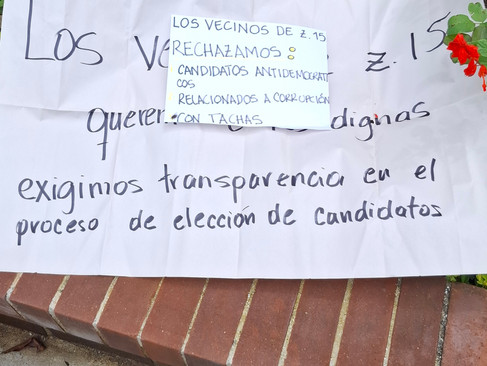 LOS VECINOS DE Z.15
RECHAZAMOS:
CANDIDATOS ANTIDEMOCRATI
COS
RELACIONADOS A CORRUPCIÓN
CON TACHAS
Los z.15
dignas
exigimos transparencia en el
proceso de elección de candidatos